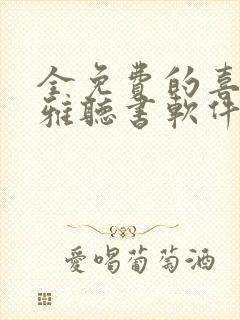 全免費的喜
雅聽書軟件
愛喝葡萄酒